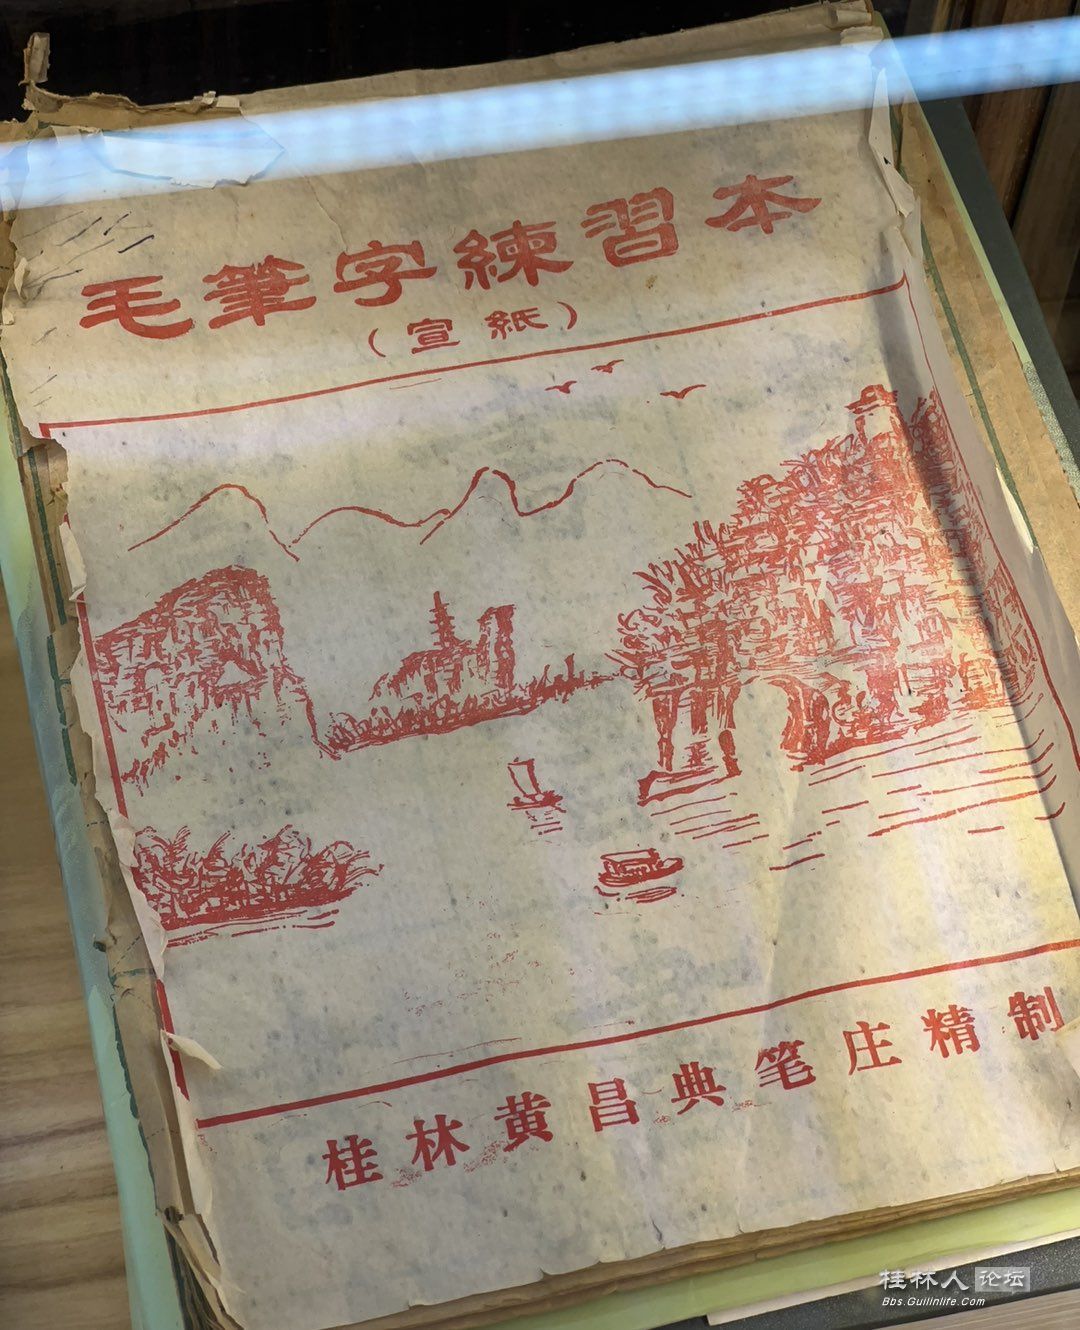 毛筆字練習本
(宣紙)
桂林黄昌典笔庄精制
桂林人论坛
Bbs.Guilinlife.Com